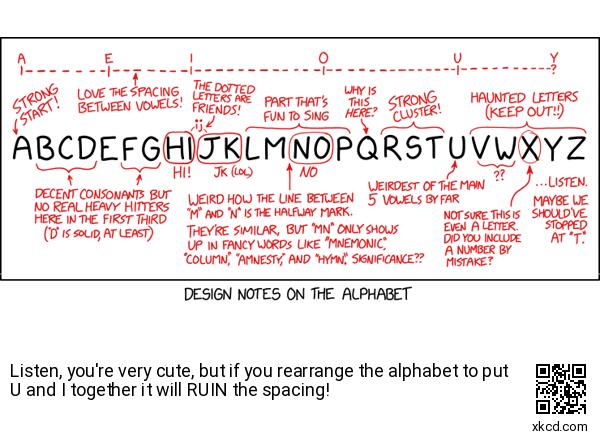 A E I O U Y?
STRONG START!
LOVE THE SPACING
BETWEEN VOWELS!
THE DOTTED
LETTERS ARE
FRIENDS!
ij
PART THAT'S
FUN TO SING
WHY IS
THIS
HERE?
STRONG
CLUSTER!
HAUNTED LETTERS
(KEEP OUT!!)
ABCDEFGHIJKLMNOPQRSTUVWXYZ
HI!
JK (LOL)
NO
??
DECENT CONSONANTS BUT
NO REAL HEAVY HITTERS
HERE IN THE FIRST THIRD
("D" IS SOLID, AT LEAST)
WEIRD HOW THE LINE BETWEEN
"M" AND "N" IS THE HALFWAY MARK.
THEY'RE SIMILAR, BUT "MN" ONLY SHOWS
UP IN FANCY WORDS LIKE "MNEMONIC,"
"COLUMN," "AMNESTY," AND "HYMN." SIGNIFICANCE??
WEIRDEST OF THE MAIN
5 VOWELS BY FAR
NOT SURE THIS IS
EVEN A LETTER.
DID YOU INCLUDE
A NUMBER BY
MISTAKE?
...LISTEN.
MAYBE WE
SHOULD'VE
STOPPED
AT "T."
DESIGN NOTES ON THE ALPHABET
Listen, you're very cute, but if you rearrange the alphabet to put
U and I together it will RUIN the spacing!
xkcd.com